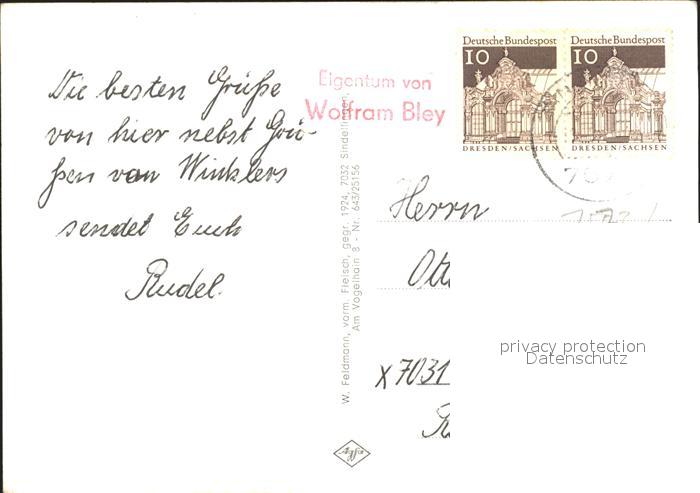 Die besten Grüße
von hier nebst Grü-
ßen von Winklers
sendet Euch
Rudel.
Eigentum von
Wolfram Bley
W. Feldmann, vorm. Fleisch, gegr. 1924, 7032 Sindelfingen,
Am Vogelhain 8 - Nr. 643/25156
Agfa
Deutsche Bundespost
10
DRESDEN/SACHSEN
Deutsche Bundespost
10
DRESDEN/SACHSEN
Herrn
Ott
x7031
privacy protection
Datenschutz